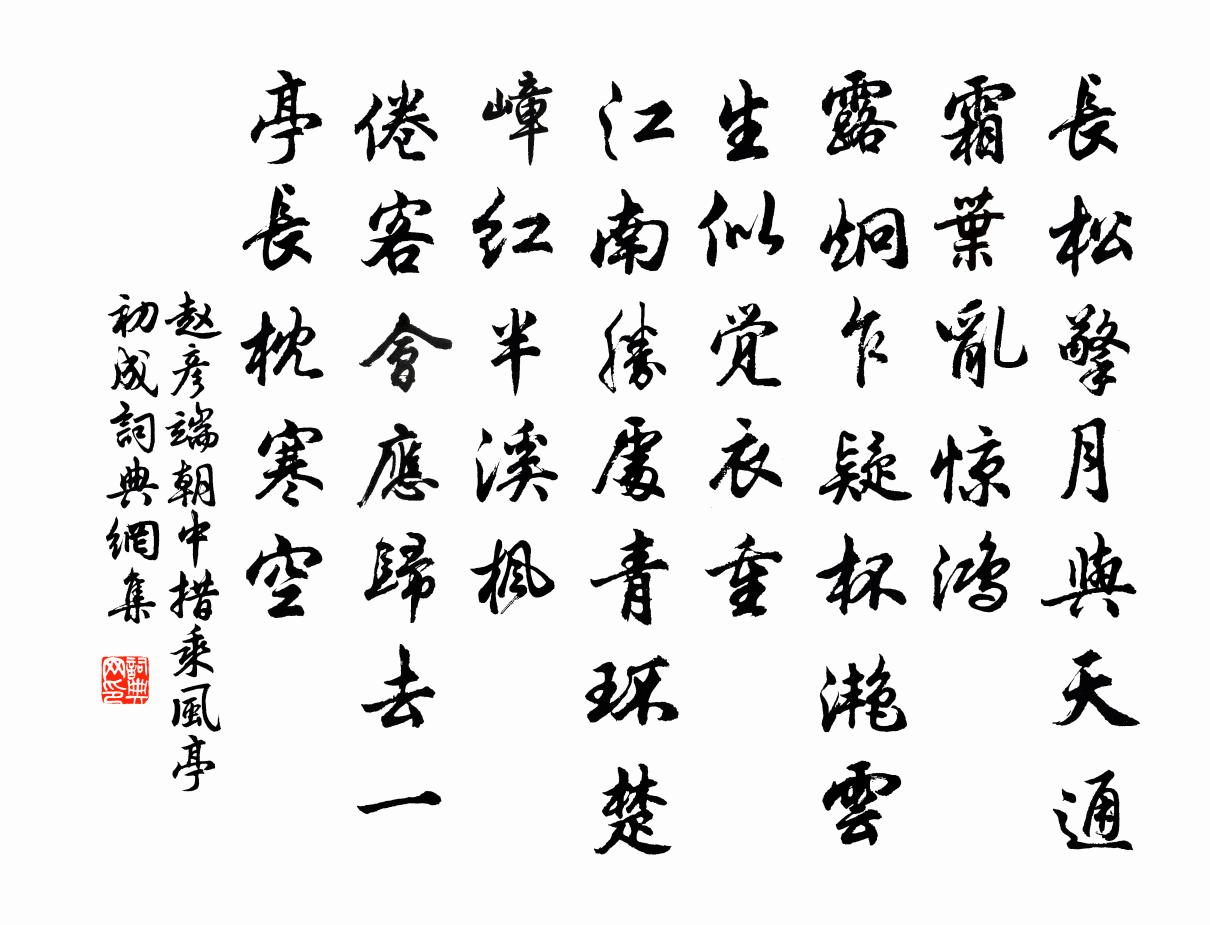 長松擎月與天通
霜葉亂惊鸿
露炯乍疑杯滟雲
生似觉衣重
江南勝處青环楚
嶂红半溪楓
倦客會應歸去一
亭長枕寒空
赵彦端朝中措乘風亭
初成詞典網集
詞典
网印